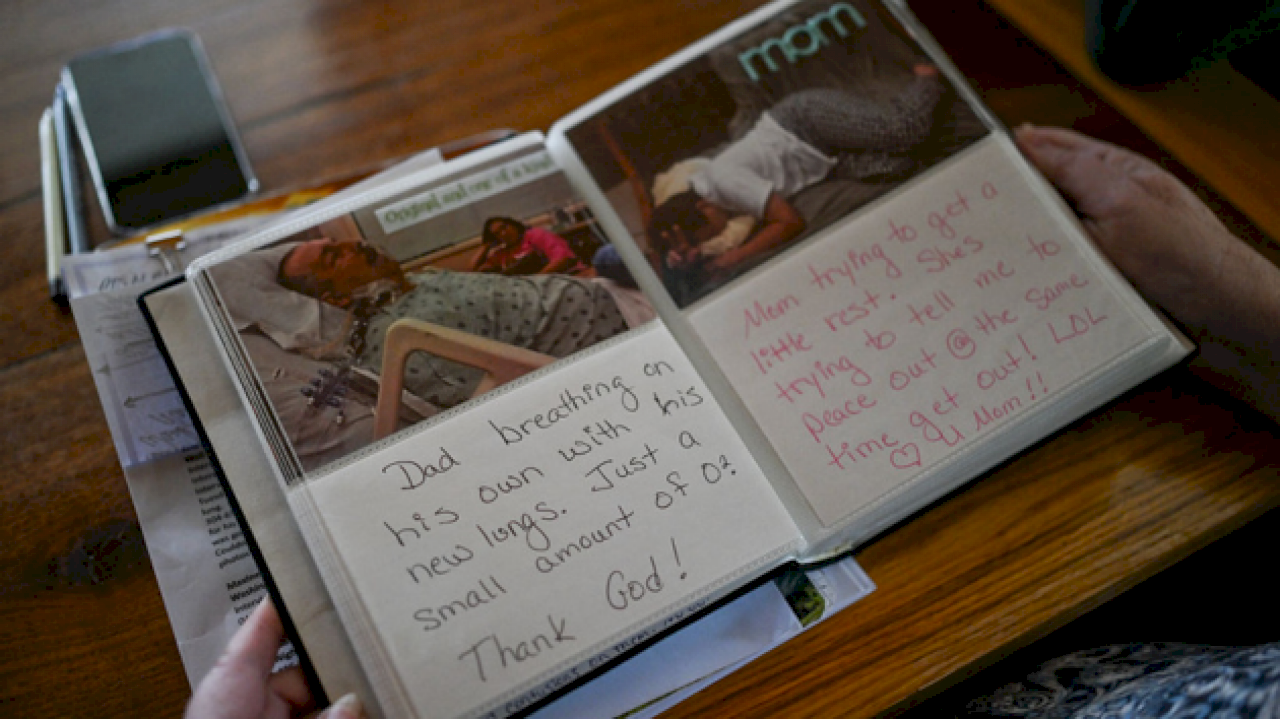 Original and one of a kind
Dad breathing on
his own with his
new longs. Just a
small amount of O2
Thank God!
mom
Mom trying to get a
little rest. Shes
trying to tell me to
peace out @ the same
time get out! LOL
♡ U Mom!!